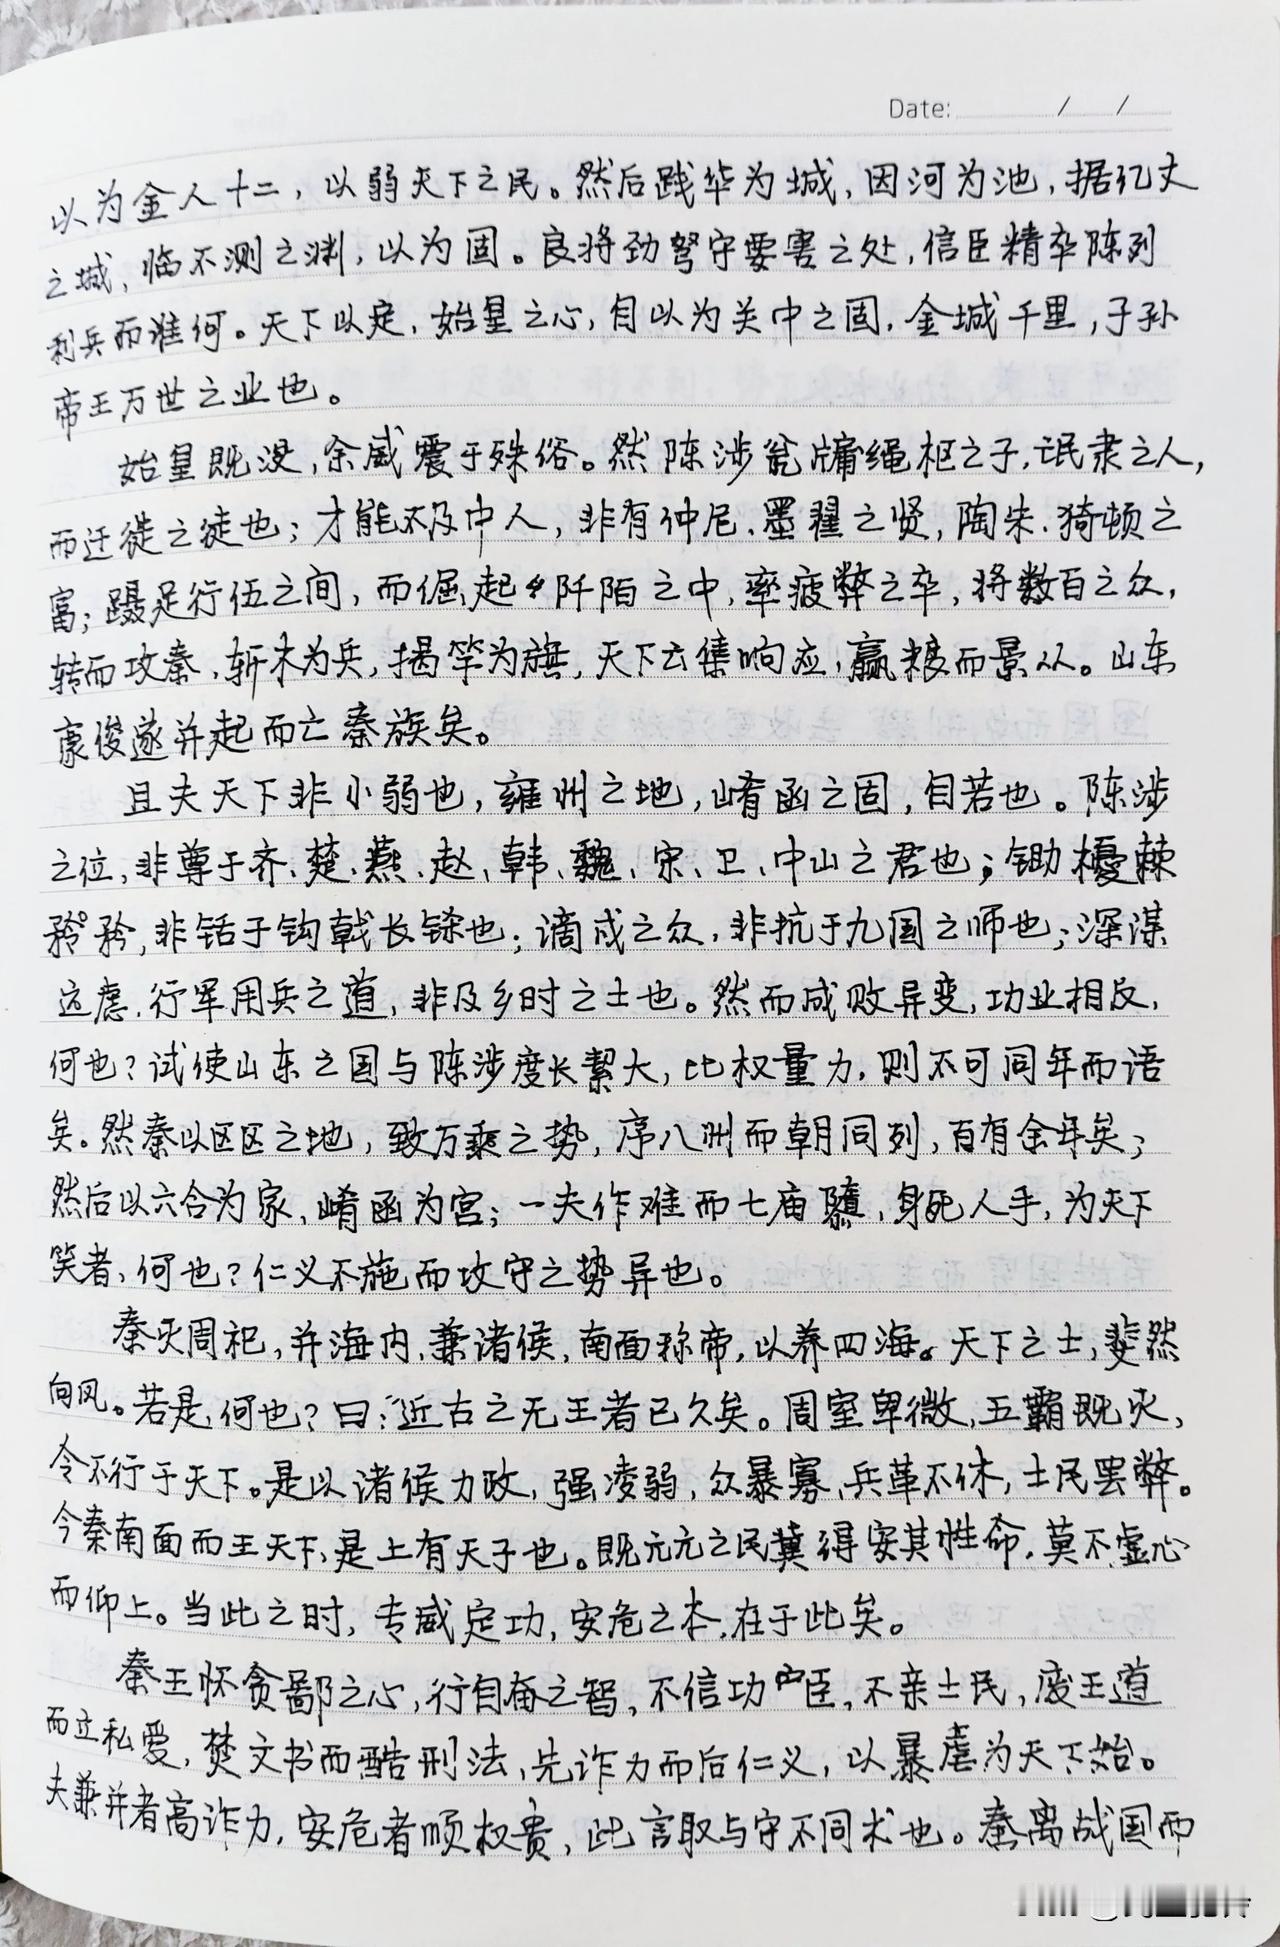 Date: / /
以为金人十二，以弱天下之民。然后践华为城，因河为池，据亿丈
之城，临不测之渊，以为固。良将劲弩守要害之处，信臣精卒陈列
利兵而谁何。天下以定，始皇之心，自以为关中之固，金城千里，子孙
帝王万世之业也。
始皇既没，余威震于殊俗。然陈涉瓮牖绳枢之子，氓隶之人，
而迁徙之徒也；才能不及中人，非有仲尼、墨翟之贤，陶朱、猗顿之
富；蹑足行伍之间，而倔起阡陌之中，率疲弊之卒，将数百之众，
转而攻秦，斩木为兵，揭竿为旗，天下云集响应，赢粮而景从。山东
豪俊遂并起而亡秦族矣。
且夫天下非小弱也，雍州之地，崤函之固，自若也。陈涉
之位，非尊于齐、楚、燕、赵、韩、魏、宋、卫、中山之君也；锄櫌棘
矜，非铦于钩戟长铩也；谪戍之众，非抗于九国之师也；深谋
远虑，行军用兵之道，非及乡时之士也。然而成败异变，功业相反，
何也？试使山东之国与陈涉度长絜大，比权量力，则不可同年而语
矣。然秦以区区之地，致万乘之势，序八州而朝同列，百有余年矣；
然后以六合为家，崤函为宫；一夫作难而七庙隳，身死人手，为天下
笑者，何也？仁义不施而攻守之势异也。
秦灭周祀，并海内，兼诸侯，南面称帝，以养四海。天下之士，斐然
向风。若是，何也？曰：近古之无王者已久矣。周室卑微，五霸既灭，
令不行于天下。是以诸侯力政，强凌弱，众暴寡，兵革不休，士民罢弊。
今秦南面而王天下，是上有天子也。既元元之民冀得安其性命，莫不虚心
而仰上。当此之时，专威定功，安危之本，在于此矣。
秦王怀贪鄙之心，行自奋之智，不信功臣，不亲士民，废王道
而立私爱，焚文书而酷刑法，先诈力而后仁义，以暴虐为天下始。
夫兼并者高诈力，安危者顺权贵，此言取与守不同术也。秦离战国而